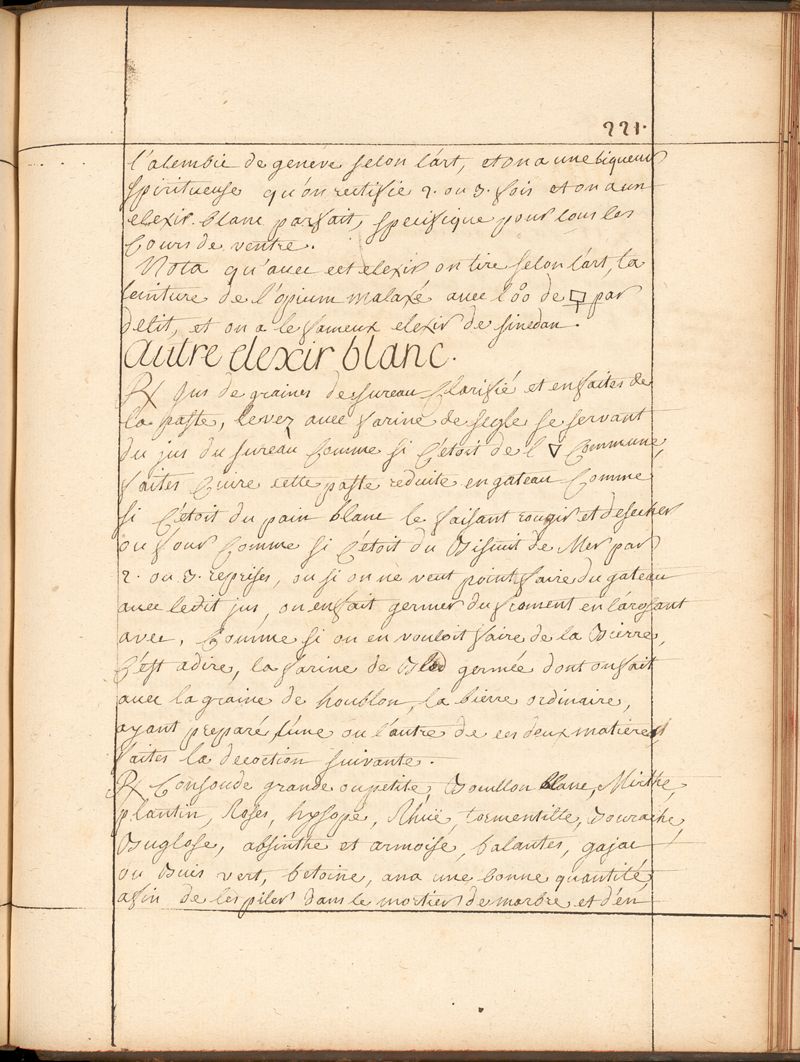 221.
l'alembic de geneve selon l'art, et on a une liqueur
spiritueuse qu'on rectifie 2. ou 3. fois et on a un
elexir blanc parfait, specifique pour tous les
Cours de ventre.
Nota qu'avec cet elexir on tire selon l'art, la
teinture de l'opium malaxé avec l'oo de par
delit, et on a le fameux elexir de sinedan.
Autre elexir blanc.
℞ Jus de graines de sureau Clarifié et en faites de
la paste, levez avec farine de segle se servant
du jus du sureau Comme si C'étoit de l'🜄 Commune,
faites Cuire cette paste reduite en gateau Comme
si C'étoit du pain blanc le faisant rougir et desecher
ou four Comme si C'étoit du Biscuit de Mer par
2. ou 3. reprises, ou si on ne veut point faire du gateau
avec ledit jus, on en fait germer du froment en l'arosant
avec, Comme si on en vouloit faire de la Bierre,
C'est adire, la farine de Bled germée dont on fait
avec la graine de houblon, la bierre ordinaire,
ayant preparé l'une ou l'autre de ces deux matieres,
faites la decoction suivante.
℞ Consoude grande ou petite, Bouillon blanc, Mirthe
plantin, Roses, hysope, Rhüe, tormentille, Bourache,
Buglose, absinthe et armoise, balantes, gajac
ou Buis vert, betoine, ana une bonne quantité,
afin de les piler dans le mortier de marbre et d'en